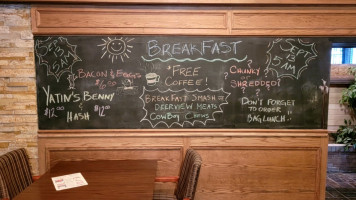 BREAKFAST
SEPT 13
5AM
BACON & EGGS
$6.00
*FREE
COFFEE!*
? CHUNKY ?
OR
SHREDDED?
SEPT 13
5AM
YATIN'S BENNY
$12.00
&
HASH $12.00
BREAKFAST SMASH =
DEERVIEW MEATS
COWBOY CHEWS
DON'T FORGET
TO ORDER
BAG LUNCH